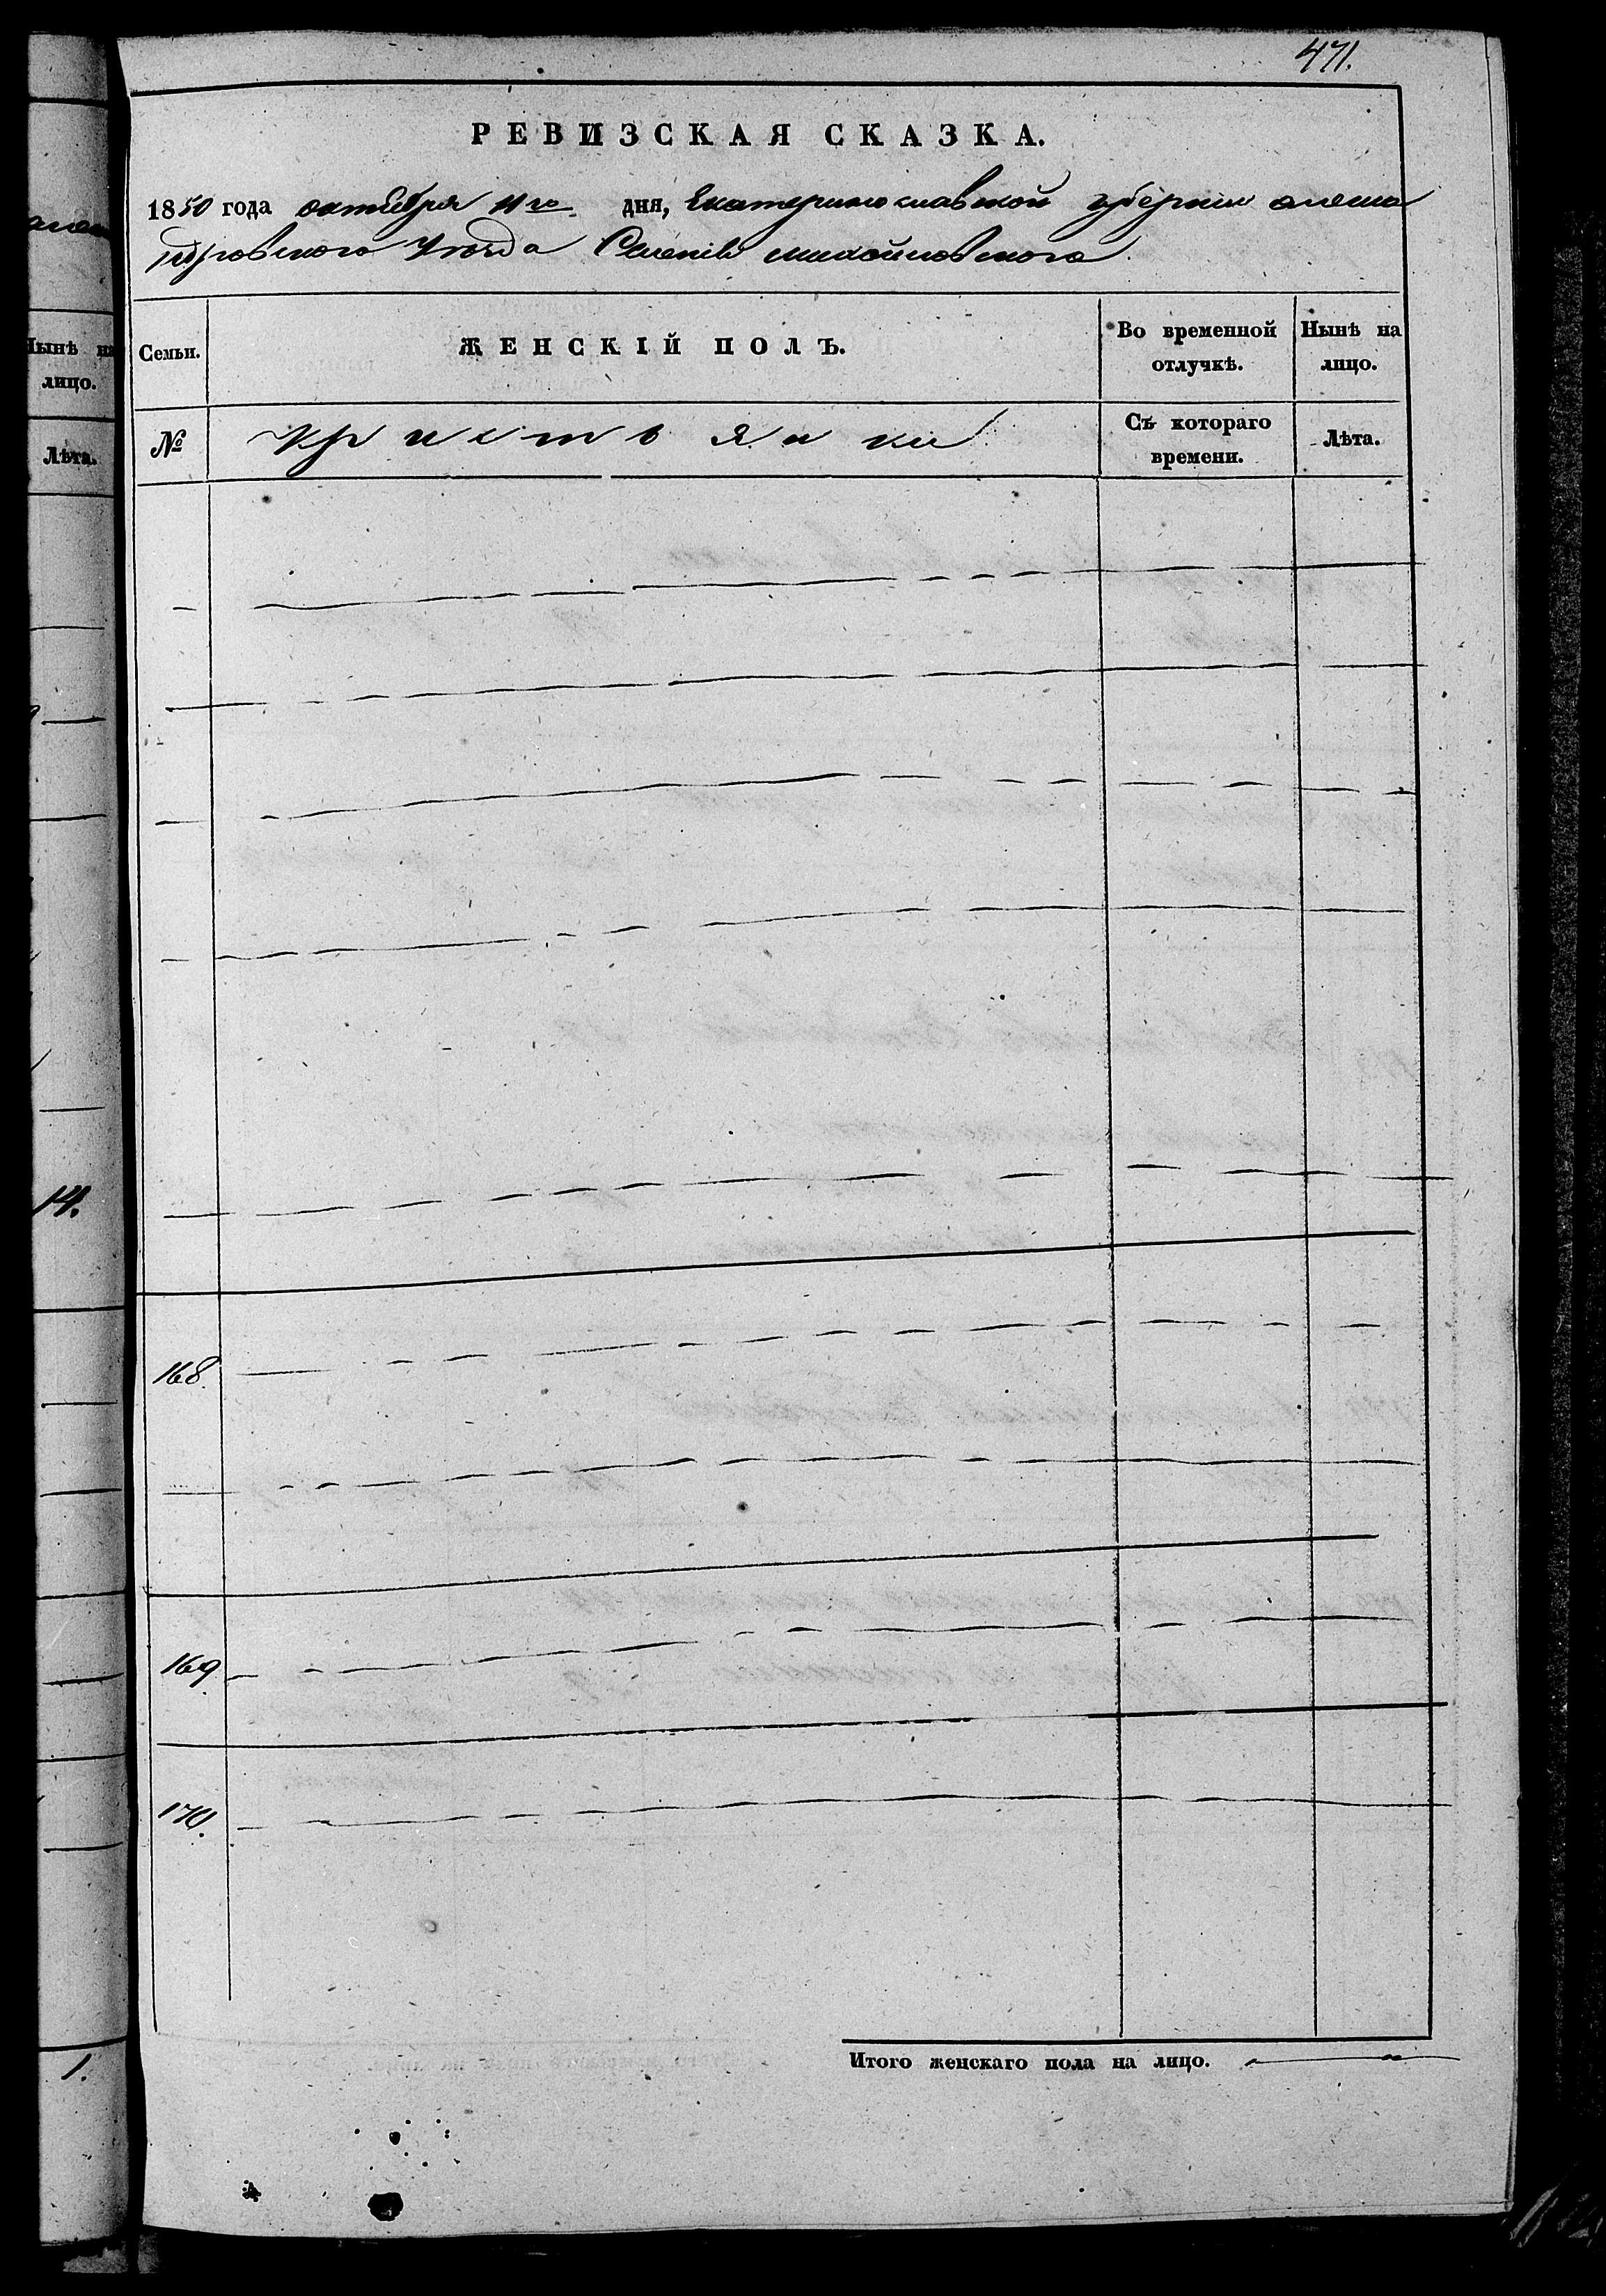 471.
РЕВИЗСКАЯ СКАЗКА.
1850 года октября 11го дня, Екатеринославской губерніи алекса
ндровского Уѣзда Селенія михайловского
Семьи.
ЖЕНСКІЙ ПОЛЪ.
Во временной отлучкѣ.
Нынѣ на лицо.
№
Кристьянки
Съ котораго времени.
Лѣта.
168.
169.
170.
Итого женскаго пола на лицо.
Нынѣ на
лицо.
Лѣта.
14.
1.